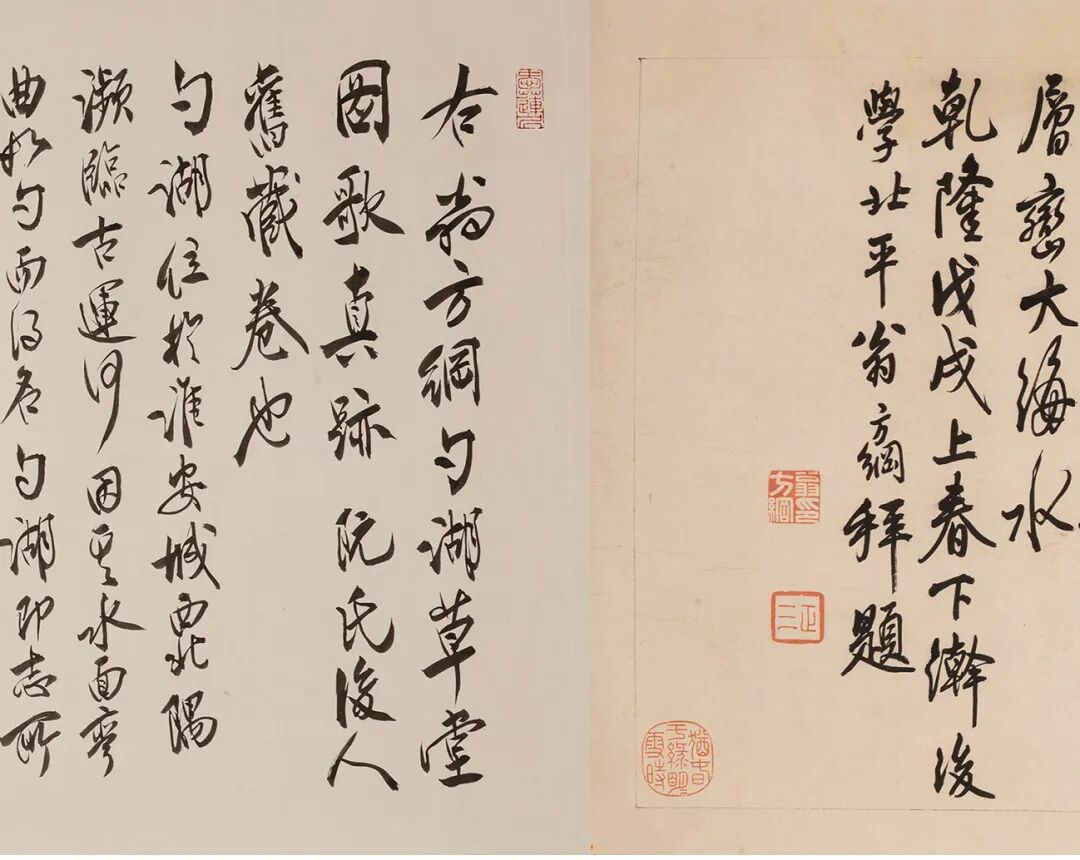 層巒大海水
乾隆戊戌上春下澣後
學北平翁方綱拜題
翁方綱印
右翁方綱勺湖草堂
圖歌真跡 阮氏後人
舊藏卷也
勺湖位於淮安城西北隅
瀕臨古運河因其水面彎
曲如勺而得名勺湖即志所